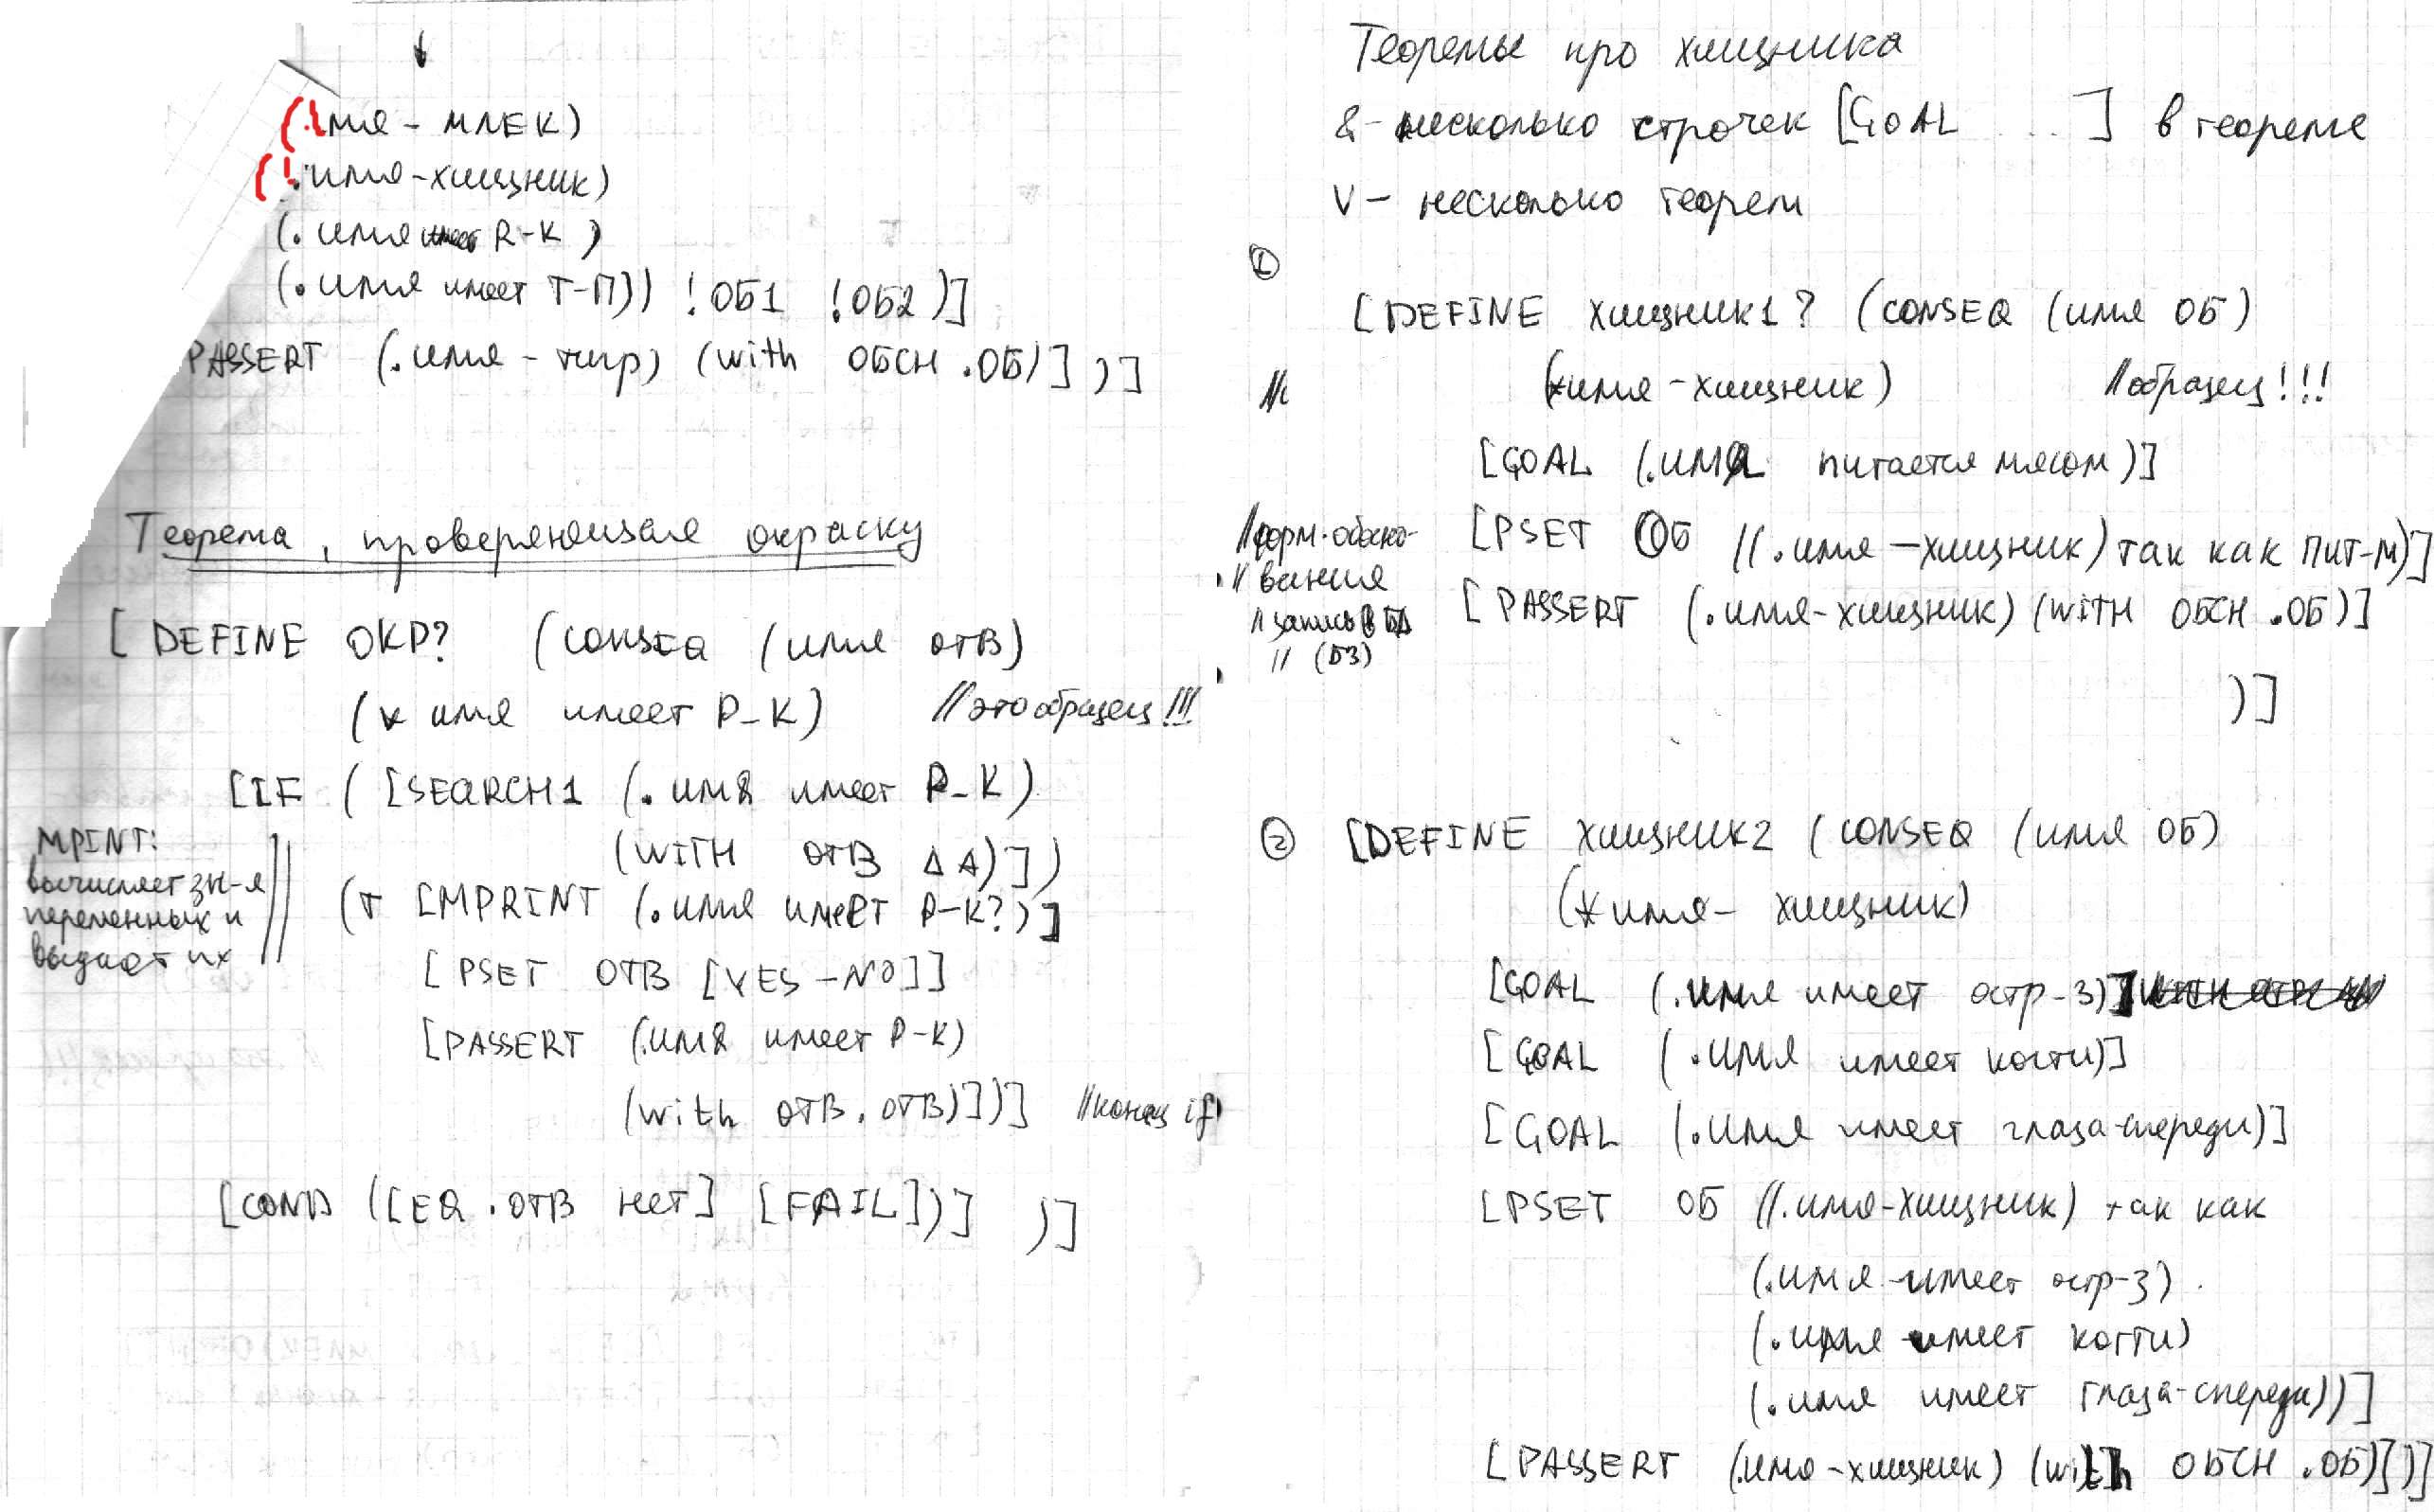 (.имя - МЛЕК)
(.имя-хищник)
(.имя имеет R-K)
(.имя имеет Т-П)) !ОБ1 !ОБ2)]
PASSERT (.имя - тигр) (with ОБСН .ОБ)] )]
Теорема, проверяющая окраску
[ DEFINE ОКР? (CONSEQ (имя ОТВ)
(* имя имеет P_K) //это образец!!!
[IF ( [SEARCH1 (. имя имеет P_K)
(WITH ОТВ Δ A)])
MPINT:
вычисляет зн-я
переменных и
выдает их
(T [MPRINT (.имя имеет P-K?)]
[PSET ОТВ [YES-NO]]
[PASSERT (.имя имеет P-K)
(with ОТВ .ОТВ)])] //конец if
[COND ([EQ .ОТВ нет] [FAIL])] )]
Теоремы про хищника
& - несколько строчек [GOAL ...] в теореме
V - несколько теорем
①
[DEFINE хищник1? (CONSEQ (имя ОБ)
(*имя-хищник) //образец!!!
[GOAL (.имя питается мясом)]
//форм. обосно-
// вания
[PSET ОБ ((.имя -хищник) так как ПИТ-М)]
// запись в БД
// (БЗ)
[PASSERT (.имя-хищник) (WITH ОБСН .ОБ)]
)]
② [DEFINE хищник2 (CONSEQ (имя ОБ)
(*имя- хищник)
[GOAL (.имя имеет остр-З)]
[GOAL (.имя имеет когти)]
[GOAL (.имя имеет глаза-спереди)]
[PSET ОБ ((.имя-хищник) так как
(.имя имеет остр-З)
(.имя имеет когти)
(.имя имеет глаза-спереди))]
[PASSERT (.имя-хищник) (with ОБСН .ОБ)])]